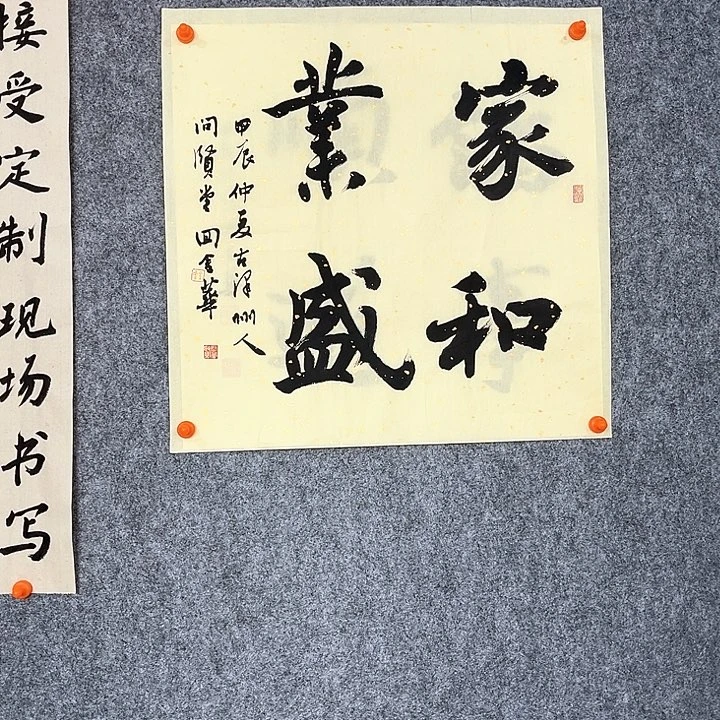 接受定制现场书写
家和
業盛
甲辰仲夏古澤州人
问賢堂田金華